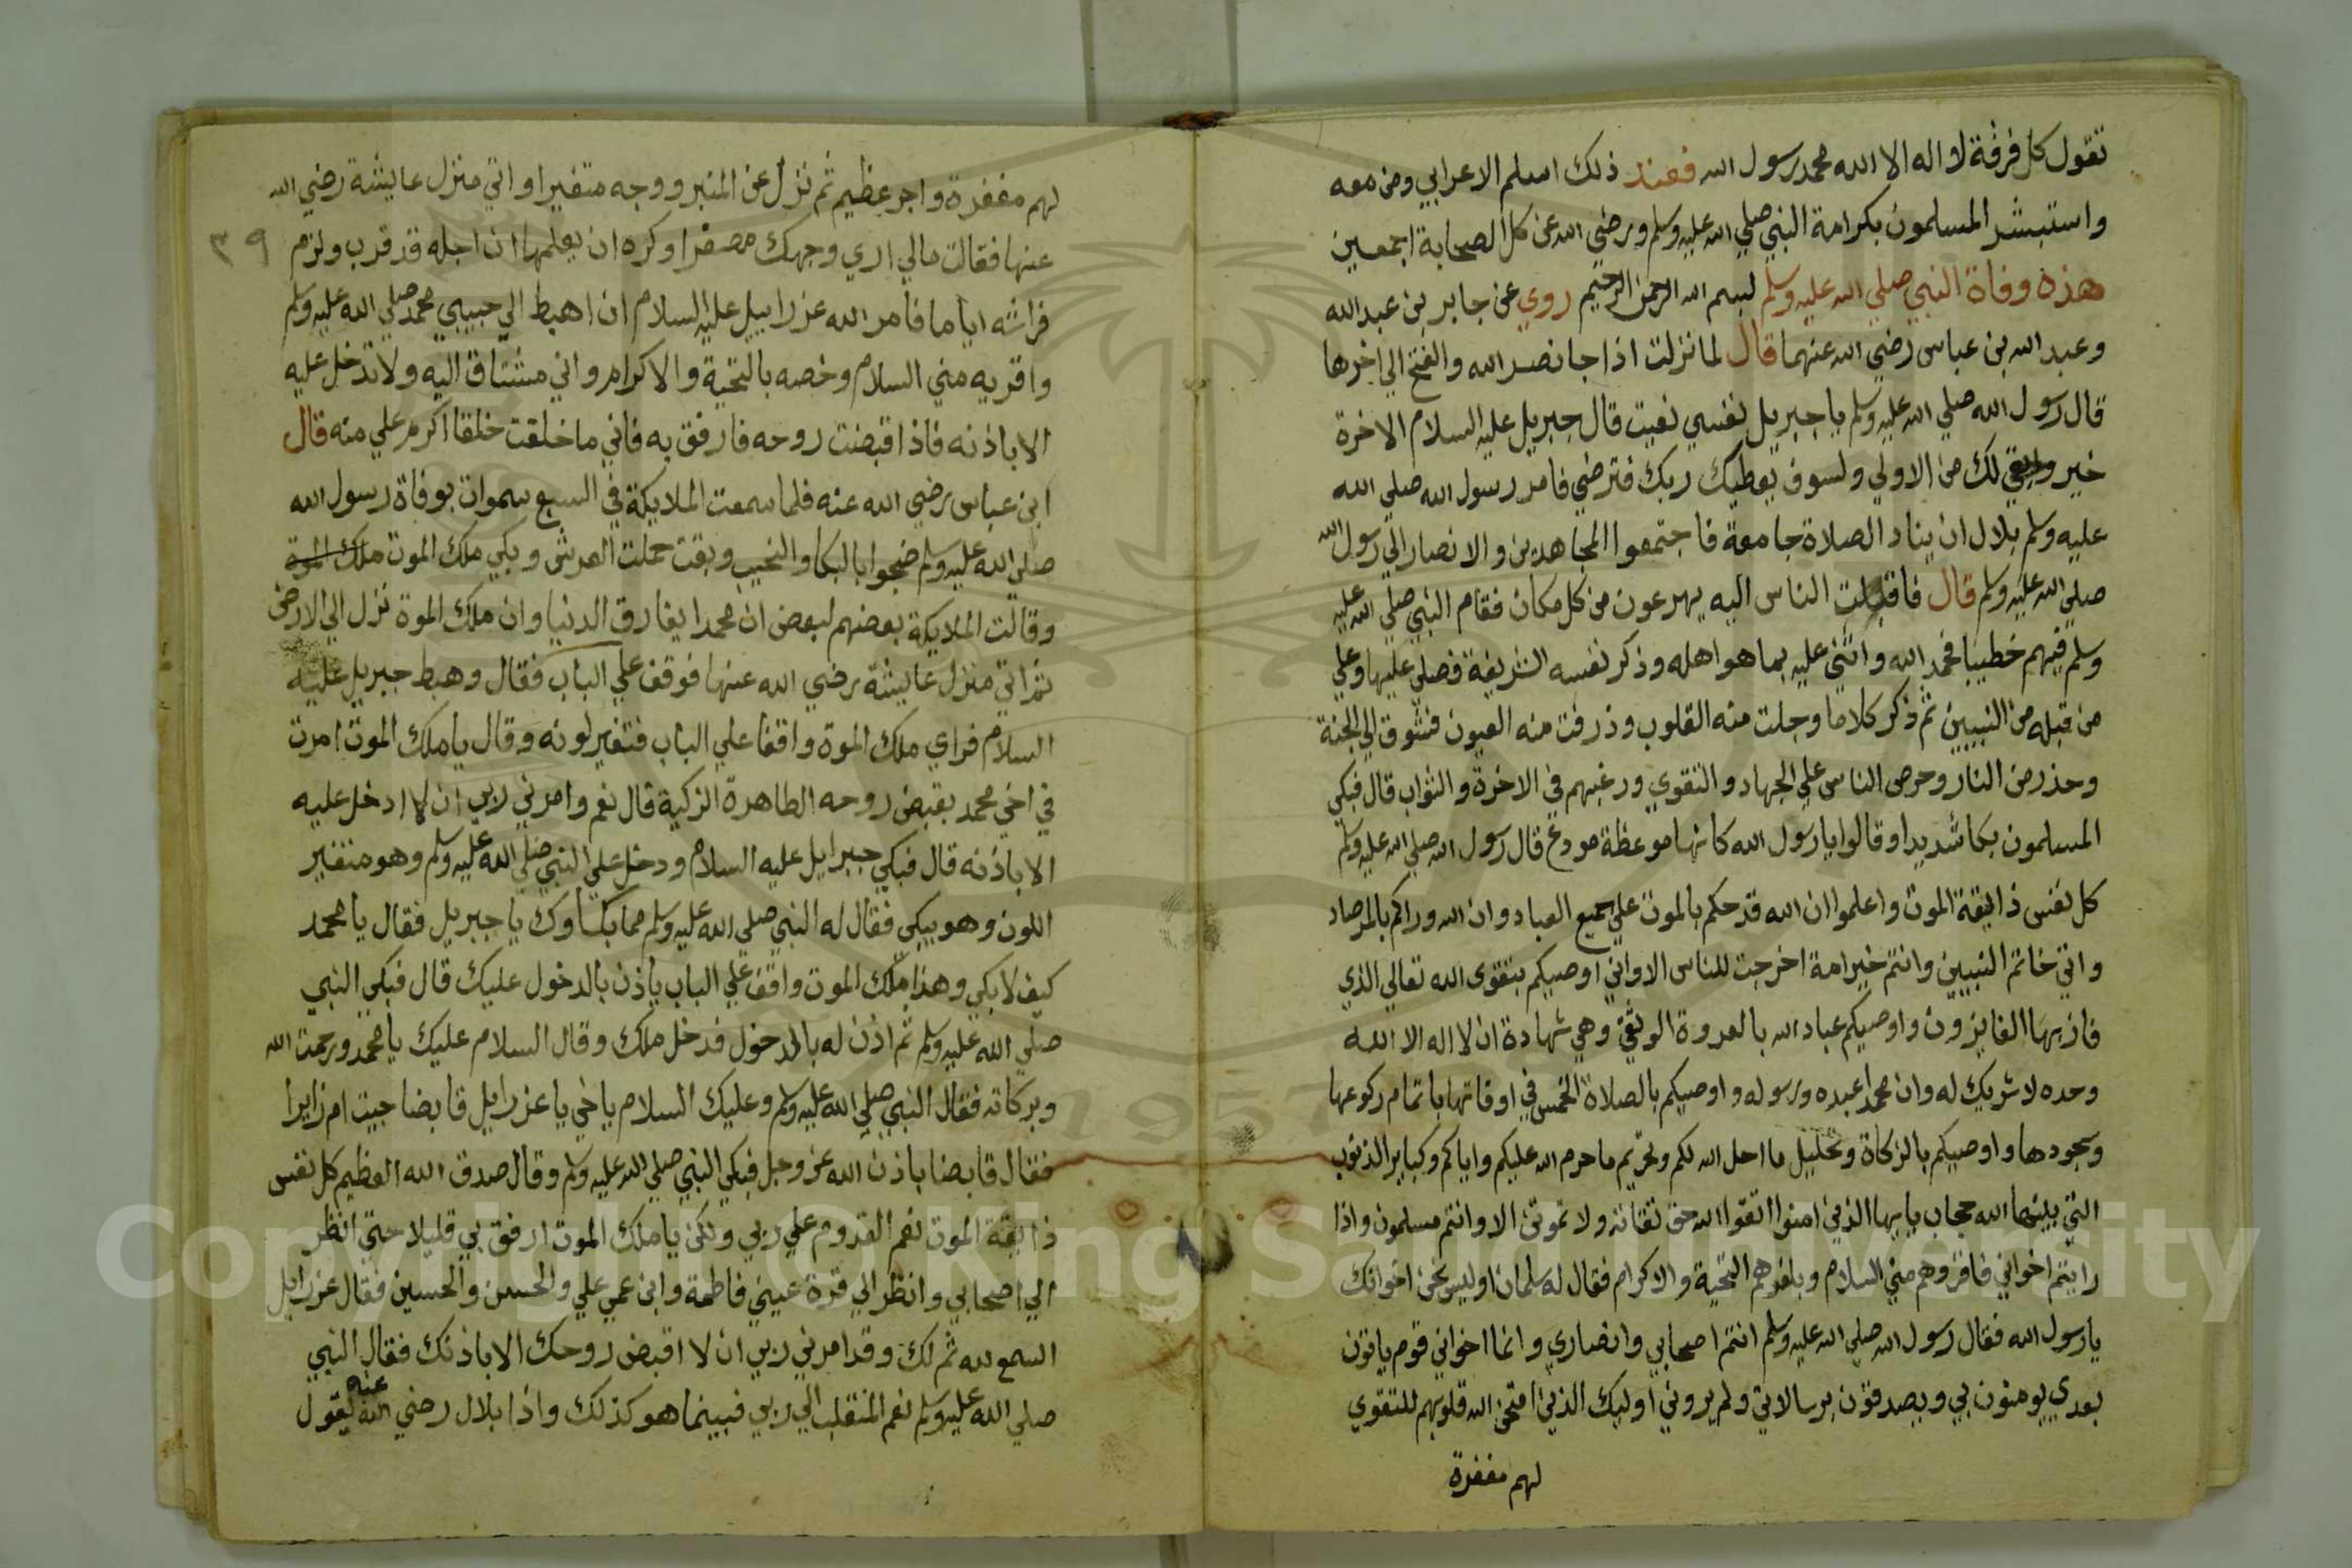 تقول كل فرقة لا اله الا الله محمد رسول الله فعند ذلك اسلم الاعرابي ومن معه
واستبشر المسلمون بكرامة النبي صلي الله عليه وسلم ورضي الله عن كل الصحابة اجمعين
هذه وفاة النبي صلي الله عليه وسلم بسم الله الرحمن الرحيم روي عن جابر بن عبد الله
وعبد الله بن عباس رضي الله عنهما قال لما نزلت اذا جا نصر الله والفتح الي اخرها
قال رسول الله صلي الله عليه وسلم يا جبريل نفسي نعيت قال جبريل عليه السلام الاخرة
خير لك من الاولي ولسوف يعطيك ربك فترضي فامر رسول الله صلي الله
عليه وسلم بلال ان يناد الصلاة جامعة فاجتمعوا المجاهدين والانصار الي رسول الله
صلي الله عليه وسلم قال فاقبلت الناس اليه يهرعون من كل مكان فقام النبي صلي الله عليه
وسلم فيهم خطيبا فحمد الله واثني عليه بما هو اهله وذكر نفسه الشريفة فصلي عليها وعلي
من قبله من النبيين ثم ذكر كلاما وجلت منه القلوب وذرفت منه العيون فشوق الي الجنة
وحذر من النار وحرص الناس علي الجهاد والتقوي ورغبهم في الاخرة والثواب قال فبكي
المسلمون بكا شديدا وقالوا يا رسول الله كانها موعظة مودع قال رسول الله صلي الله عليه وسلم
كل نفس ذايقة الموت واعلموا ان الله قد حكم بالموت علي جميع العباد وان الله وراكم بالمرصاد
واني خاتم النبيين وانتم خير امة اخرجت للناس الا واني اوصيكم بتقوى الله تعالي الذي
فاز بها الفايزون واوصيكم عباد الله بالعروة الوثقي وهي شهادة ان لا اله الا الله
وحده لا شريك له وان محمدا عبده ورسوله واوصيكم بالصلاة الخمس في اوقاتها باتمام ركوعها
وسجودها واوصيكم بالزكاة وتحليل ما احل الله لكم وتحريم ما حرم الله عليكم واياكم وكباير الذنوب
التي بينها الله حجاب يا ايها الذين امنوا اتقوا الله حق تقاته ولا تموتن الا وانتم مسلمون واذا
رايتم اخواني فاقروهم مني السلام وبلغوهم التحية والاكرام فقال له سلمان اوليس نحن اخوانك
يا رسول الله فقال رسول الله صلي الله عليه وسلم انتم اصحابي وانصاري وانما اخواني قوم ياتون
بعدي يومنون بي ويصدقون برسالاتي ولم يروني اوليك الذين امتحن الله قلوبهم للتقوي
لهم مغفرة
لهم مغفرة واجر عظيم ثم نزل عن المنبر ووجه متغيرا واتي منزل عايشة رضي الله
عنها فقالت مالي اري وجهك مصفرا وكره ان يعلمها ان اجله قد قرب ولزم
٣٩
فراشه اياما فامر الله عزراييل عليه السلام ان اهبط الي حبيبي محمد صلي الله عليه وسلم
واقريه مني السلام وخصه بالتحية والاكرام واني مشتاق اليه ولا تدخل عليه
الا باذنه فاذا قبضت روحه فارفق به فاني ما خلقت خلقا اكرم علي منه قال
ابن عباس رضي الله عنه فلما سمعت الملايكة في السبع سموات بوفاة رسول الله
صلي الله عليه وسلم ضجوا بالبكا والنحيب وبقت حملت العرش وبكي ملك الموت ملك الموة
وقالت الملايكة بعضهم لبعض ان محمدا يفارق الدنيا وان ملك الموة نزل الي الارض
ثم اتي منزل عايشة رضي الله عنها فوقف علي الباب فقال وهبط جبريل عليه
السلام فراي ملك الموة واقفا علي الباب فتغير لونه وقال يا ملك الموت امرت
في اخي محمد بقبض روحه الطاهرة الزكية قال نعم وامرني ربي ان لا ادخل عليه
الا باذنه قال فبكي جبرايل عليه السلام ودخل علي النبي صلي الله عليه وسلم وهو متغير
اللون وهو يبكي فقال له النبي صلي الله عليه وسلم مما بكاوك يا جبريل فقال يا محمد
كيف لا بكي وهذا ملك الموت واقف علي الباب ياذن بالدخول عليك قال فبكي النبي
صلي الله عليه وسلم ثم اذن له بالدخول فدخل ملك وقال السلام عليك يا محمد ورحمت الله
وبركاته فقال النبي صلي الله عليه وسلم وعليك السلام يا اخي يا عزرايل قابضا جيت ام زايرا
فقال قابضا باذن الله عز وجل فبكي النبي صلي الله عليه وسلم وقال صدق الله العظيم كل نفس
ذايقة الموت نعم القدوم علي ربي ولكن يا ملك الموت ارفق بي قليلا حتي انظر
الي اصحابي وانظر الي قرة عيني فاطمة وابن عمي علي والحسن والحسين فقال عزرايل
السمع لله ثم لك وقد امرني ربي ان لا اقبض روحك الا باذنك فقال النبي
صلي الله عليه وسلم نعم المنقلب الي ربي فبينما هو كذلك واذا بلال رضي الله عنه يقول
Copyright © King Saud University
1957